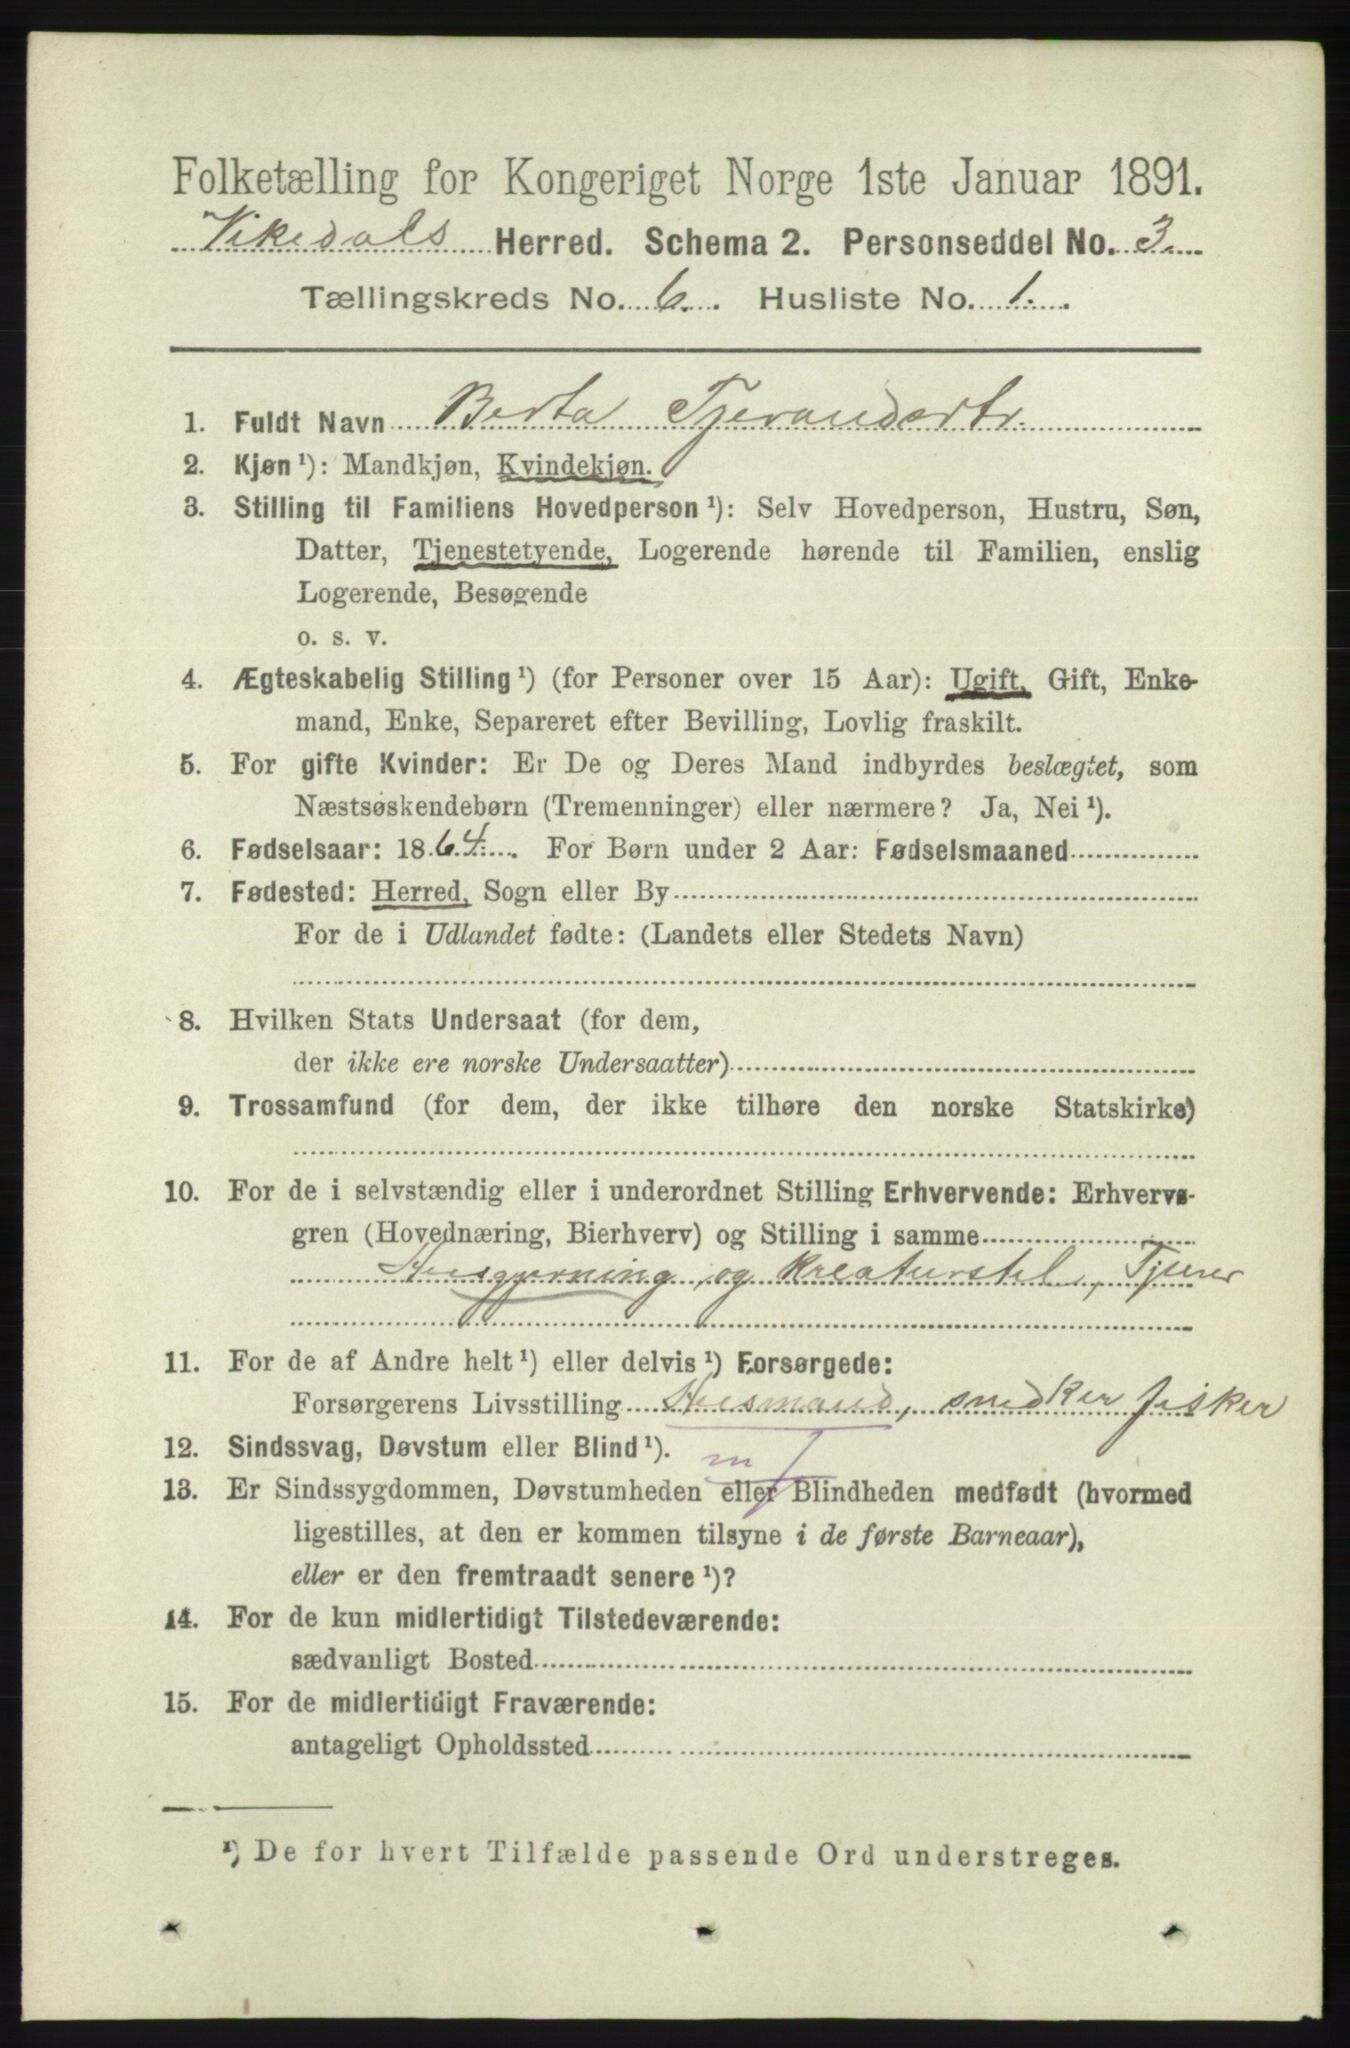 Folketælling for Kongeriget Norge 1ste Januar 1891.
Vikedals Herred. Schema 2. Personseddel No. 3.
Tællingskreds No. 6. Husliste No. 1.
1. Fuldt Navn Berta Tjerandsdtr.
2. Kjøn ¹): Mandkjøn, Kvindekjøn.
3. Stilling til Familiens Hovedperson ¹): Selv Hovedperson, Hustru, Søn,
Datter, Tjenestetyende, Logerende hørende til Familien, enslig
Logerende, Besøgende
o. s. v.
4. Ægteskabelig Stilling ¹) (for Personer over 15 Aar): Ugift, Gift, Enke-
mand, Enke, Separeret efter Bevilling, Lovlig fraskilt.
5. For gifte Kvinder: Er De og Deres Mand indbyrdes beslægtet, som
Næstsøskendebørn (Tremenninger) eller nærmere? Ja, Nei ¹).
6. Fødselsaar: 1864. For Børn under 2 Aar: Fødselsmaaned
7. Fødested: Herred, Sogn eller By
For de i Udlandet fødte: (Landets eller Stedets Navn)
8. Hvilken Stats Undersaat (for dem,
der ikke ere norske Undersaatter)
9. Trossamfund (for dem, der ikke tilhøre den norske Statskirke)
10. For de i selvstændig eller i underordnet Stilling Erhvervende: Erhvervs-
gren (Hovednæring, Bierhverv) og Stilling i samme
Husgjerning og kreaturstel, Tjener
11. For de af Andre helt ¹) eller delvis ¹) Forsørgede:
Forsørgerens Livsstilling Husmand, snedker fisker
12. Sindssvag, Døvstum eller Blind ¹).
13. Er Sindssygdommen, Døvstumheden eller Blindheden medfødt (hvormed
ligestilles, at den er kommen tilsyne i de første Barneaar),
eller er den fremtraadt senere ¹)?
14. For de kun midlertidigt Tilstedeværende:
sædvanligt Bosted
15. For de midlertidigt Fraværende:
antageligt Opholdssted
¹) De for hvert Tilfælde passende Ord understreges.